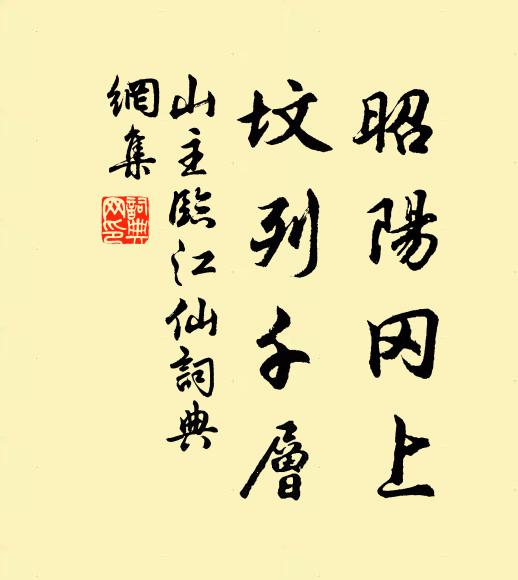 昭陽冈上
坟列千層
山主臨江仙詞典
網集
詞典
网印